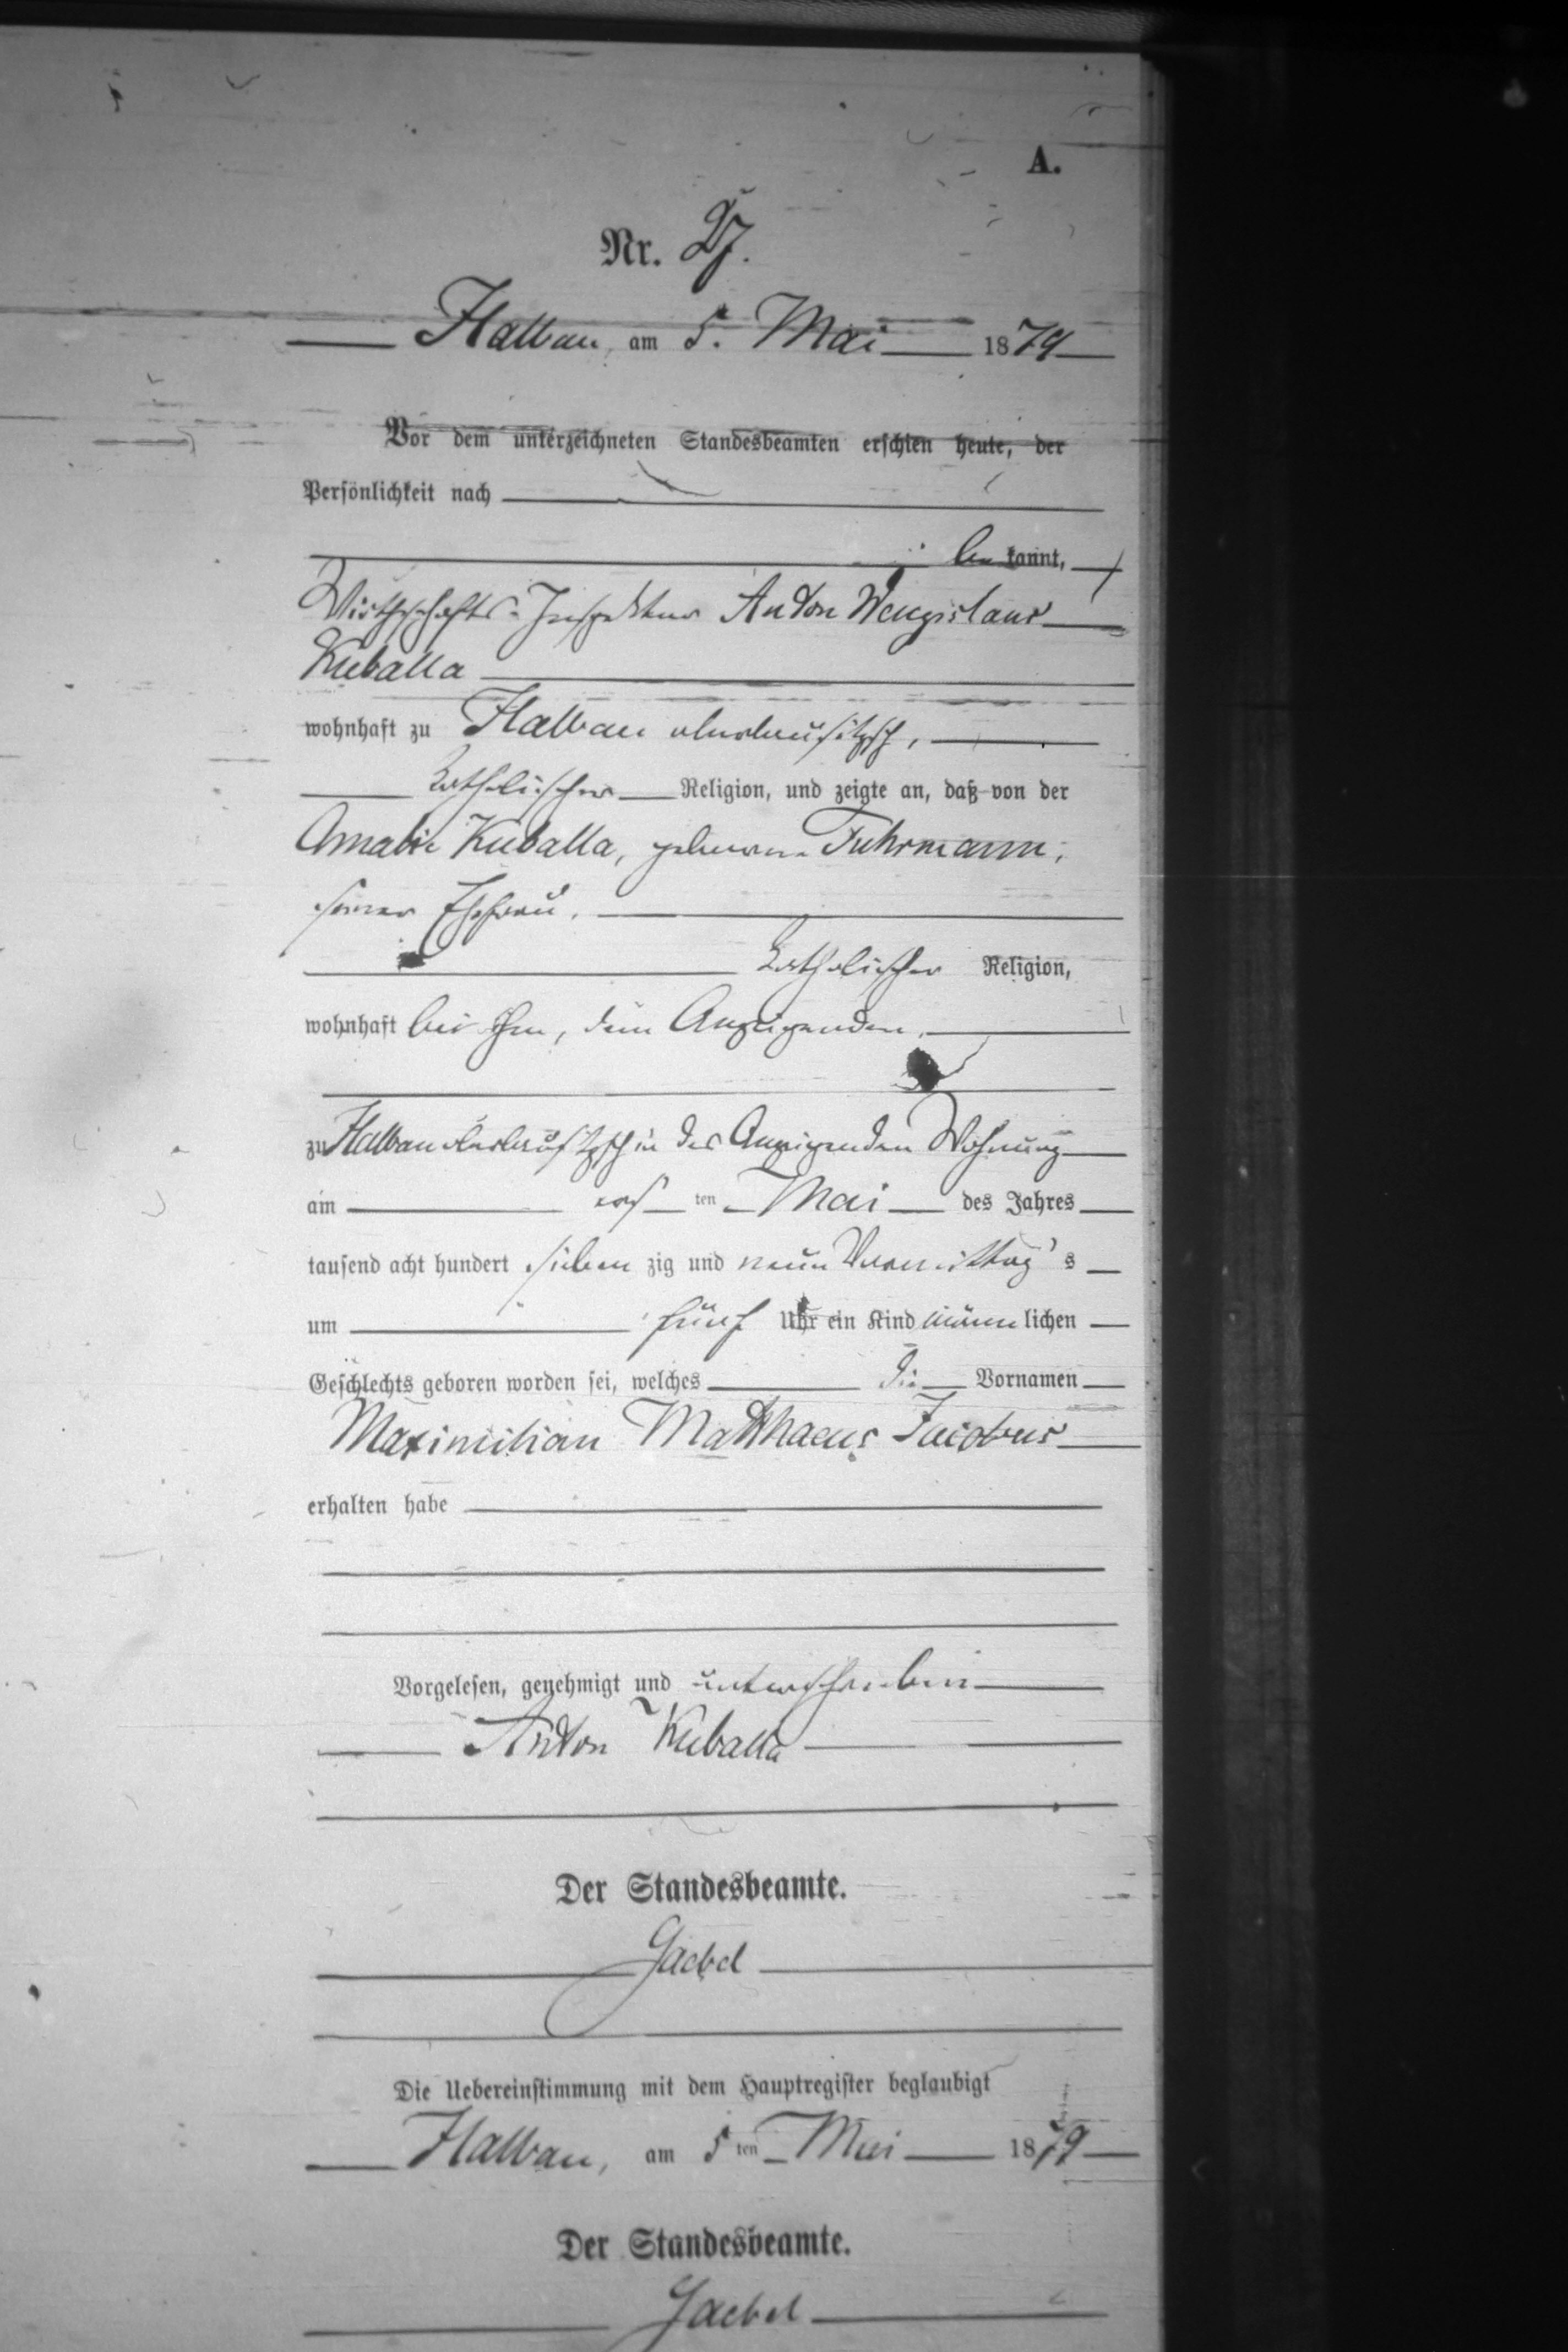 A.
Nr. 27.
Halbau, am 5. Mai 1879
Vor dem unterzeichneten Standesbeamten erschien heute, der
Persönlichkeit nach
be kannt,
Wirthschafts-Inspektor Anton Wenzislaus
Kuballa
wohnhaft zu Halbau oberlausitzsch,
katholischer Religion, und zeigte an, daß von der
Amalie Kuballa, geborene Fuhrmann,
seiner Ehefrau,
katholischer Religion,
wohnhaft bei ihm, dem Anzeigenden,
zu Halbau oberlausitzsch in des Anzeigenden Wohnung
am ers ten Mai des Jahres
tausend acht hundert sieben zig und neun Vormittags
um fünf Uhr ein Kind männlichen
Geschlechts geboren worden sei, welches die Vornamen
Maximilian Matthaeus Jacobus
erhalten habe
Vorgelesen, genehmigt und unterschrieben
Anton Kuballa
Der Standesbeamte.
Gaebel
Die Uebereinstimmung mit dem Hauptregister beglaubigt
Halbau, am 5 ten Mai 1879
Der Standesbeamte.
Gaebel